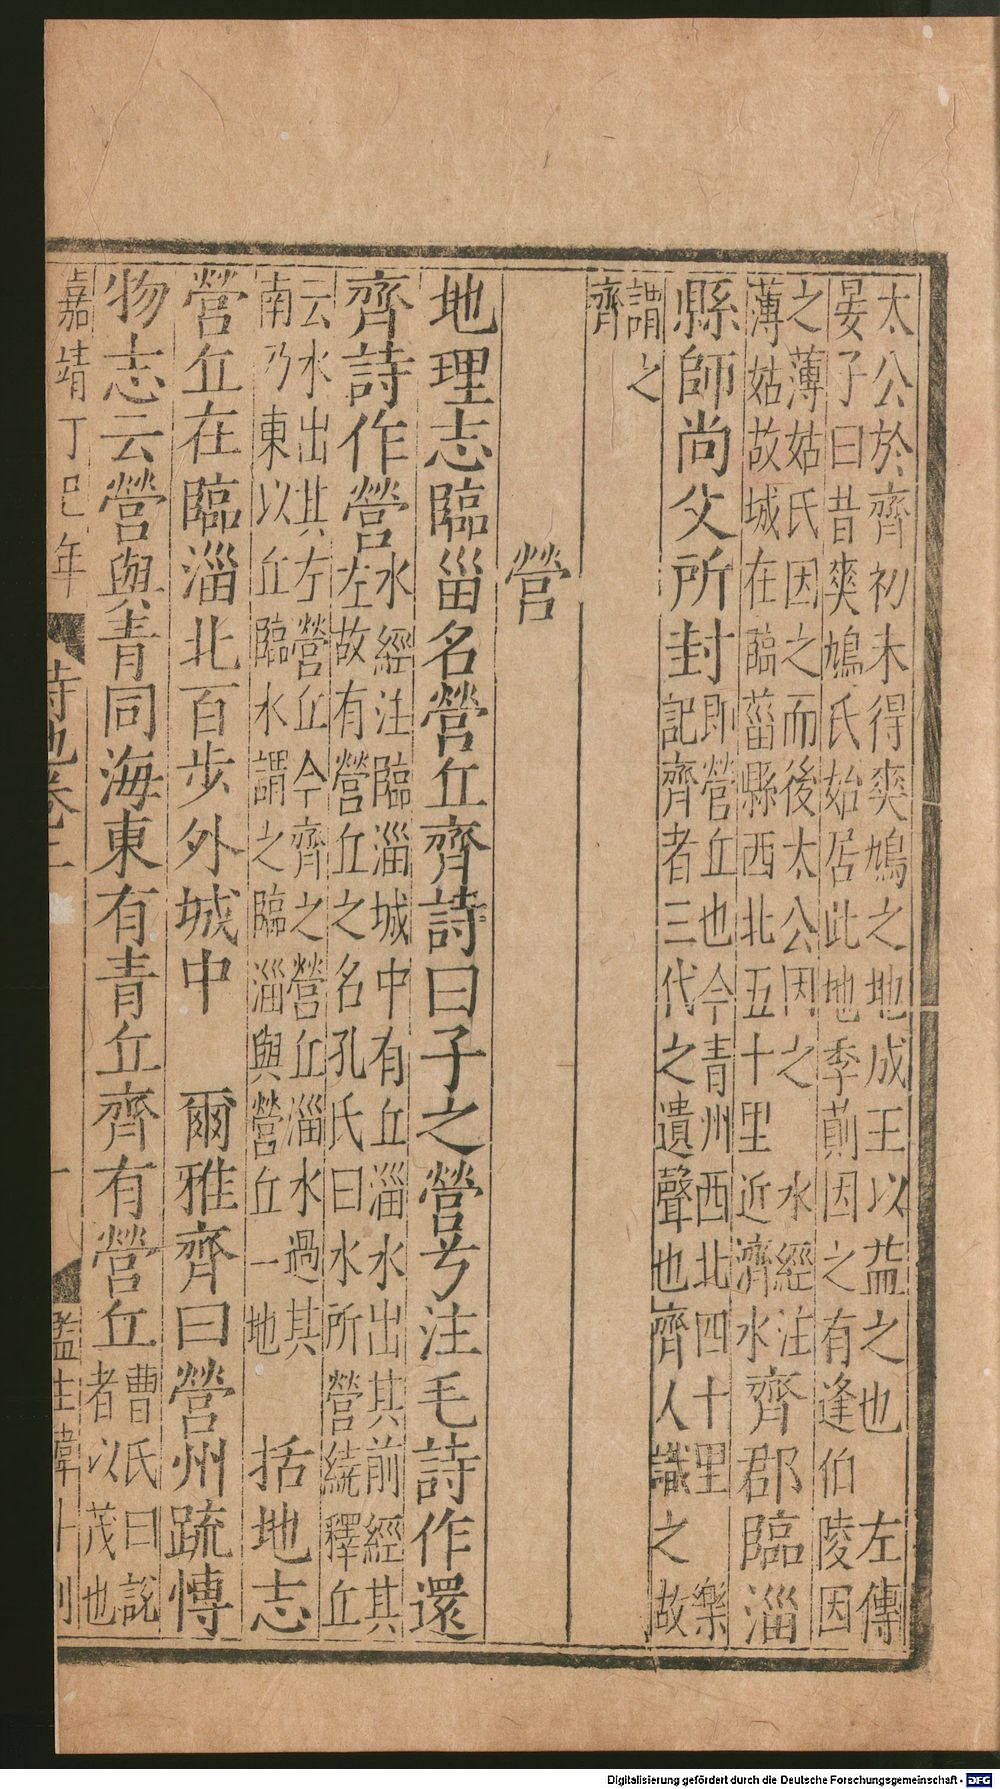 太公於齊初未得爽鳩之地成王以益之也 左傳
晏子曰昔爽鳩氏始居此地季萴因之有逢伯陵因
之薄姑氏因之而後太公因之 水經注
薄姑故城在臨菑縣西北五十里近濟水
齊郡臨淄
縣師尚父所封
即營丘也今青州西北四十里 樂
記齊者三代之遺聲也齊人識之故
謂之
齊
營
地理志臨甾名營丘齊詩曰子之營兮注毛詩作還
齊詩作營
水經注臨淄城中有丘淄水出其前經其
左故有營丘之名孔氏曰水所營繞釋丘
云水出其左營丘今齊之營丘淄水過其
南乃東以丘臨水謂之臨淄與營丘一地
括地志
營丘在臨淄北百步外城中 爾雅齊曰營州疏愽
物志云營與青同海東有青丘齊有營丘
曹氏曰説
者以茂也
嘉靖丁巳年
詩地卷二
Digitalisierung gefördert durch die Deutsche Forschungsgemeinschaft - DFG